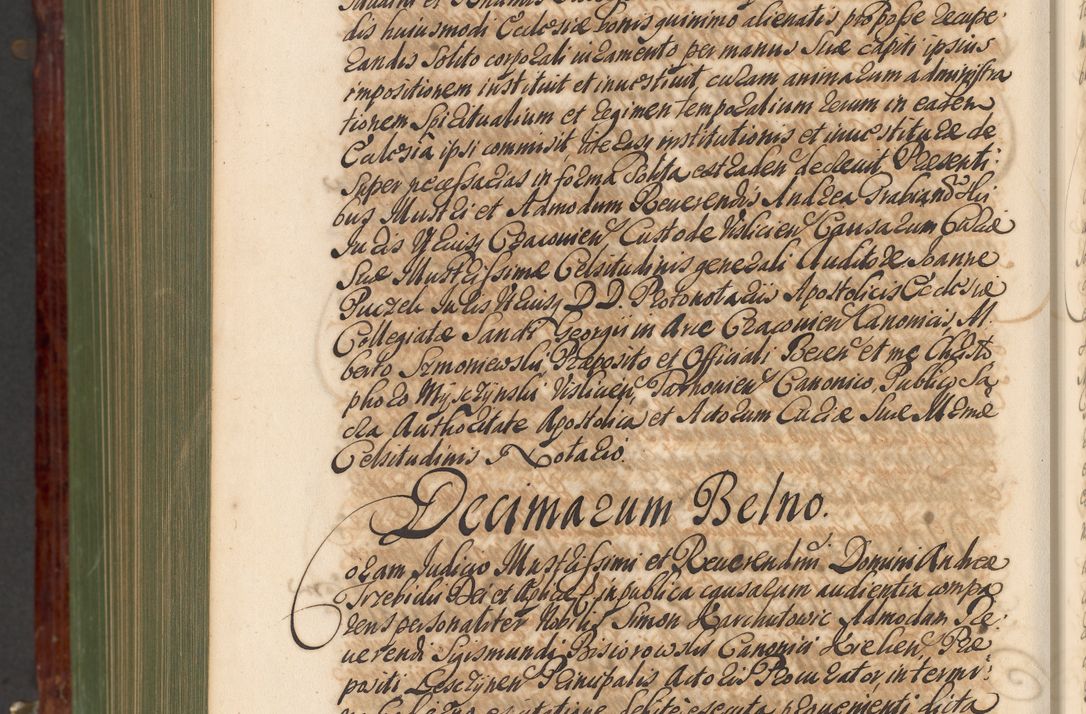 dis huiusmodi Ecclesiæ bonis quinimo alienatis pro posse recupe
randis solito corporali iuramento per manus suæ capiti ipsius
impositionem instituit et inuestiuit, curam animarum administra
tionem Spiritualium et Regimen temporalium rerum in eadem
Ecclesia ipsi commisit literasq institutionis et inuestituræ de
super necessarias in forma solita extraden decreuit Præsenti:
bus Illustri et Admodum Reuerendis Andrea Grabiano
Juris Vtriusq Cracouien Custode Vislicien Causarum Curiæ
Suæ Illustrissimæ Celsitudinis generali Auditore Joanne
Puczek Juris Vtriusq D D. Protonotariis Apostolicis Ecclesiæ
Collegiatæ Sancti Georgii in Arce Cracouien Canonicis, Al
berto Szmoniewski, Præposito et Officiali Becen et me Christo
phoro Myszczynski Vislicien, Tarnouien Canonico, Publico Sa
cra Authoritate Apostolica et Actorum Curiæ Suæ Illmæ
Celsitudinis Notario.
Decimarum Belno.
Coram Judicio Illustrissimi et Reuerendmi Domini Andreæ
Trzebicki Dei et Aplicæ in publica causarum audientia compa
rens personaliter Nobilis Simon Karchutowic Admodum Re
uerendi Sigismundi Pisiorowski Canonici Kielcen, Præ
positi Lesczynen Principalis Actoris Procurator in termi: